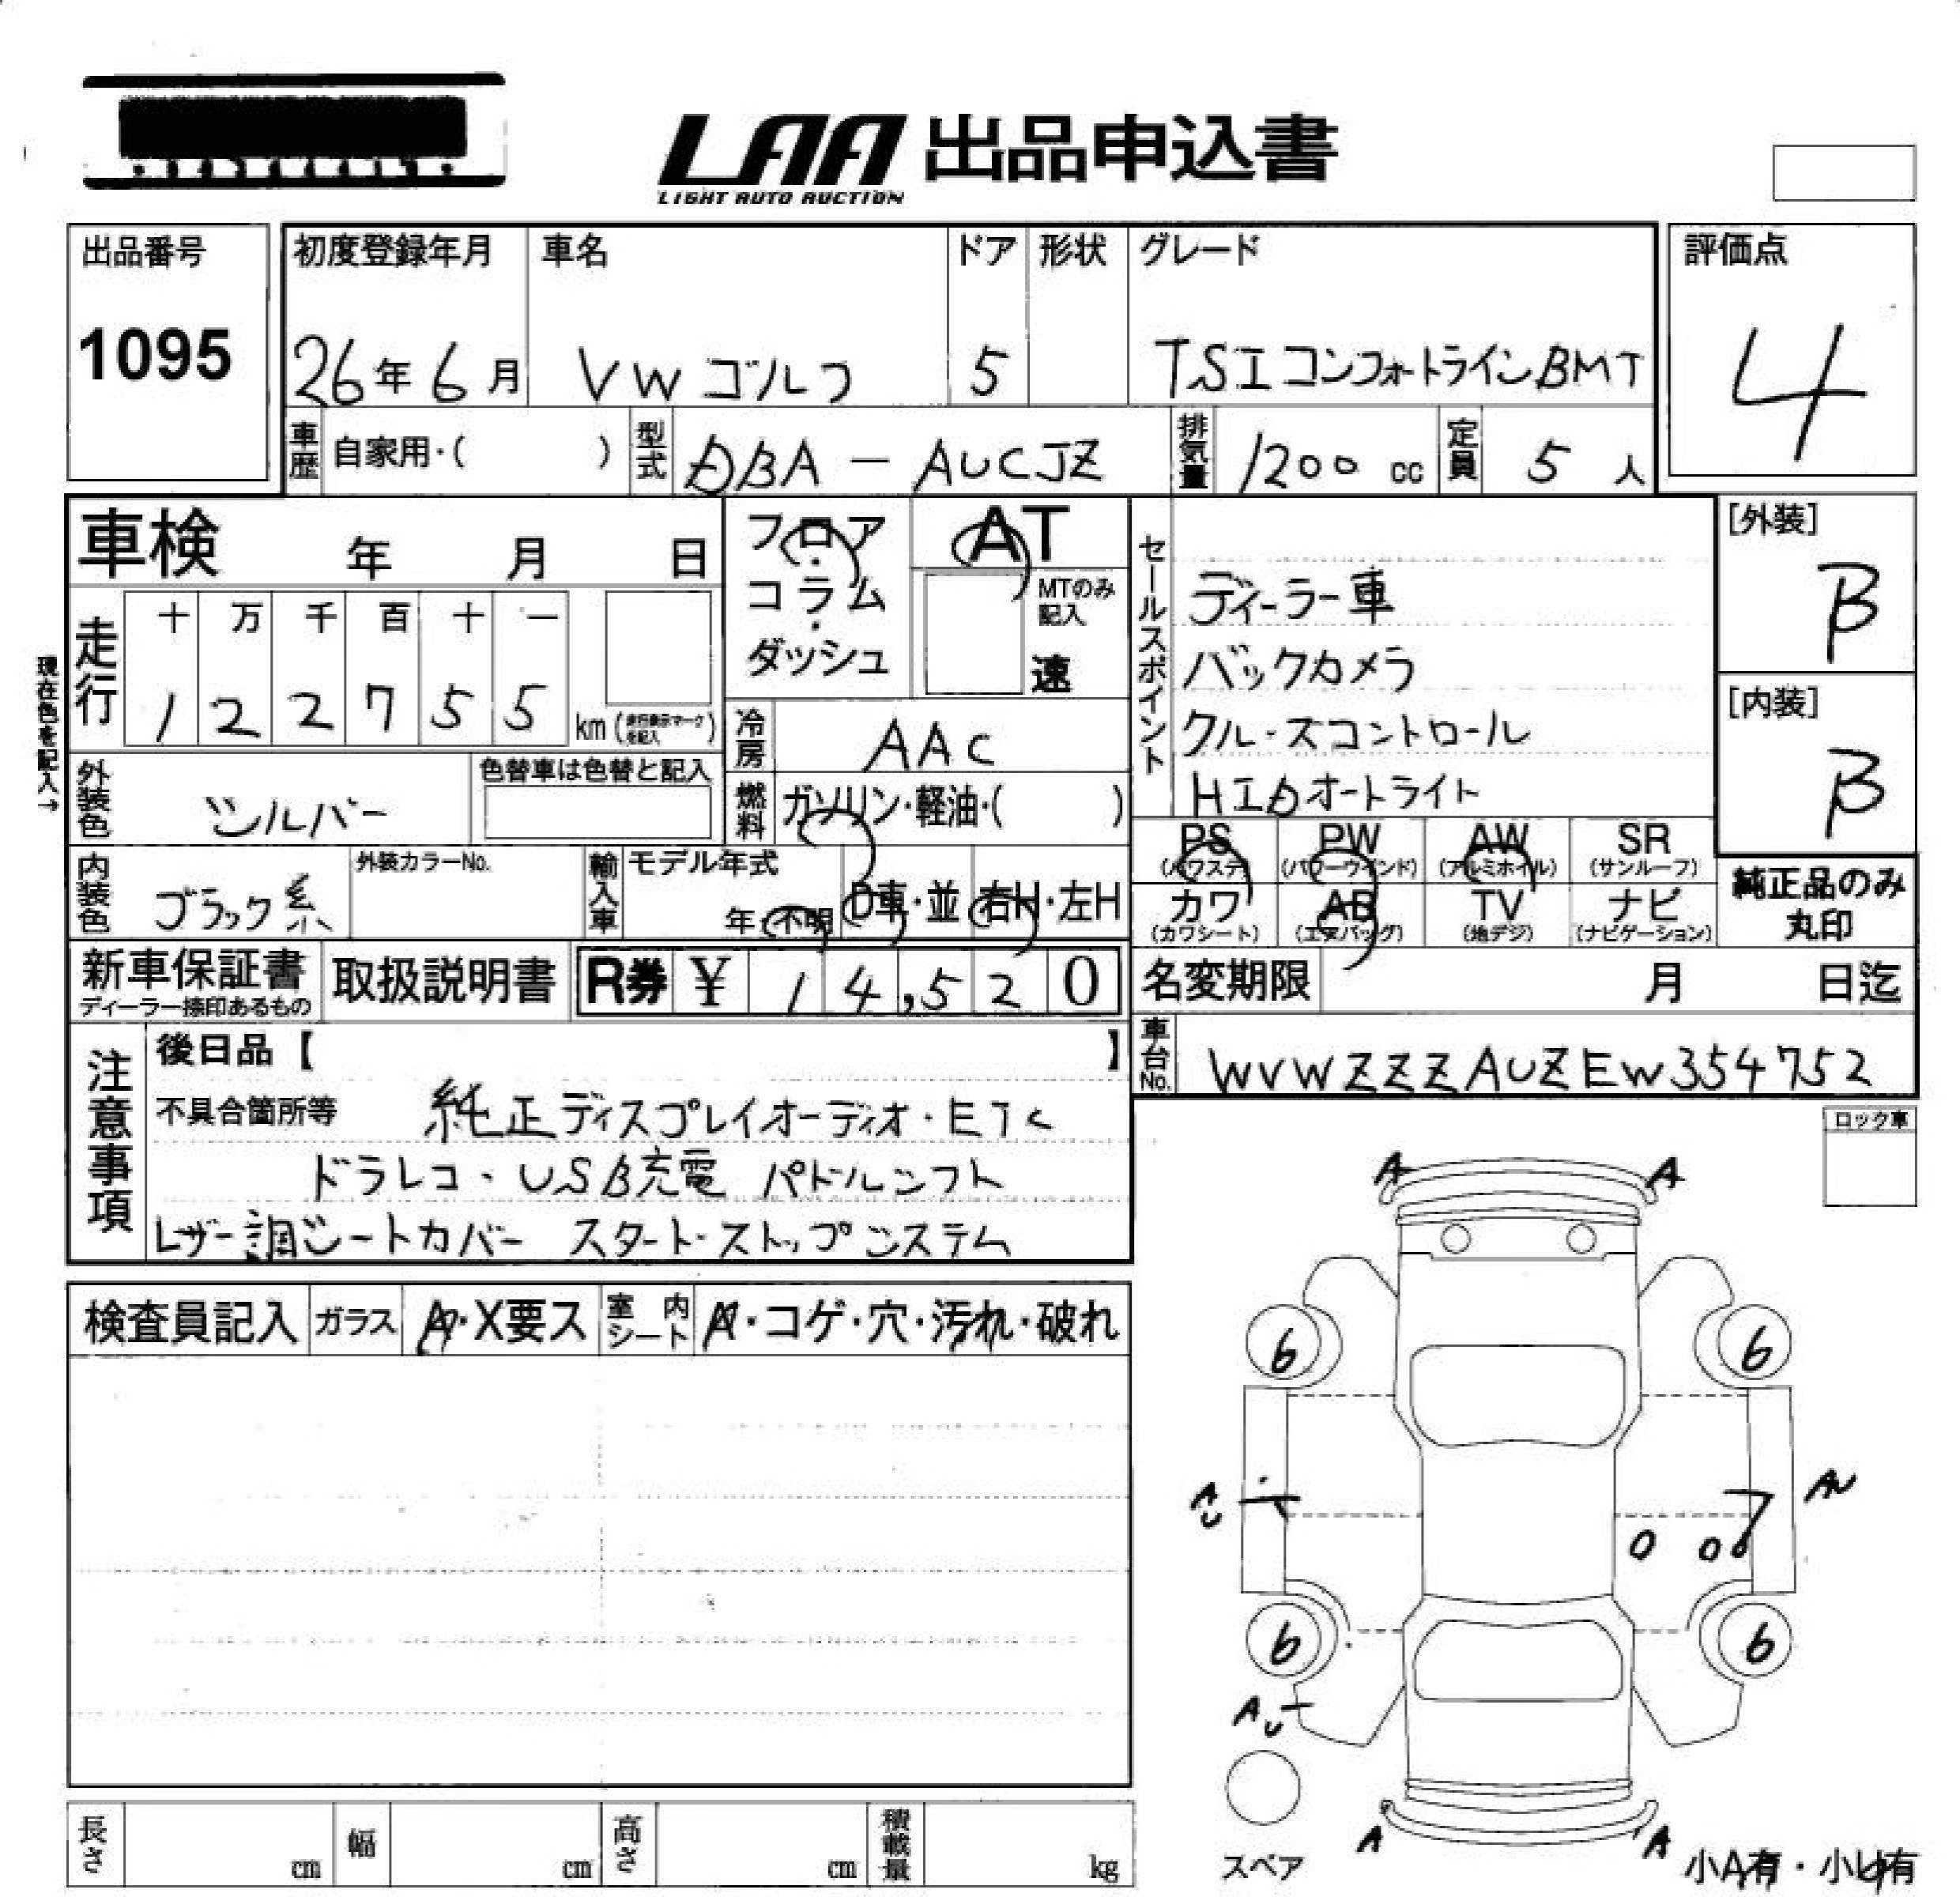 LAA 出品申込書
LIGHT AUTO AUCTION
出品番号
1095
初度登録年月
26年6月
車名
VW ゴルフ
ドア
5
形状
グレード
TSIコンフォートラインBMT
評価点
4
車歴 自家用・( )
型式 DBA-AUCJZ
排気量 1200 cc
定員 5 人
車検 年 月 日
フロア・コラム・ダッシュ
AT
MTのみ記入
速
セールスポイント
ディーラー車
バックカメラ
クルーズコントロール
HIDオートライト
[外装]
B
[内装]
B
現在色を記入→
走行
十 万 千 百 十 一
1 2 2 7 5 5 km (走行表示マークを記入)
冷房 AAC
外装色 シルバー
色替車は色替と記入
燃料 ガソリン・軽油・( )
PS (パワステ)
PW (パワーウインド)
AW (アルミホイル)
SR (サンルーフ)
カワ (カワシート)
AB (エアバッグ)
TV (地デジ)
ナビ (ナビゲーション)
純正品のみ丸印
内装色 ブラック系
外装カラーNo.
輸入車 モデル年式
年・不明
D車・並
右H・左H
新車保証書
ディーラー捺印あるもの
取扱説明書
R券 ¥ 14,520
名変期限 月 日迄
車台No. WVWZZZAUZEW354752
注意事項
後日品【 】
不具合箇所等 純正ディスプレイオーディオ・ETC
ドラレコ・USB充電 パドルシフト
レザー調シートカバー スタート・ストップシステム
ロック車
検査員記入
ガラス A・X要ス
室内シート A・コゲ・穴・汚れ・破れ
A A
6 6
AU AU
6 6
AU
A A
スペア
小A有・小U有
長さ cm
幅 cm
高さ cm
積載量 kg